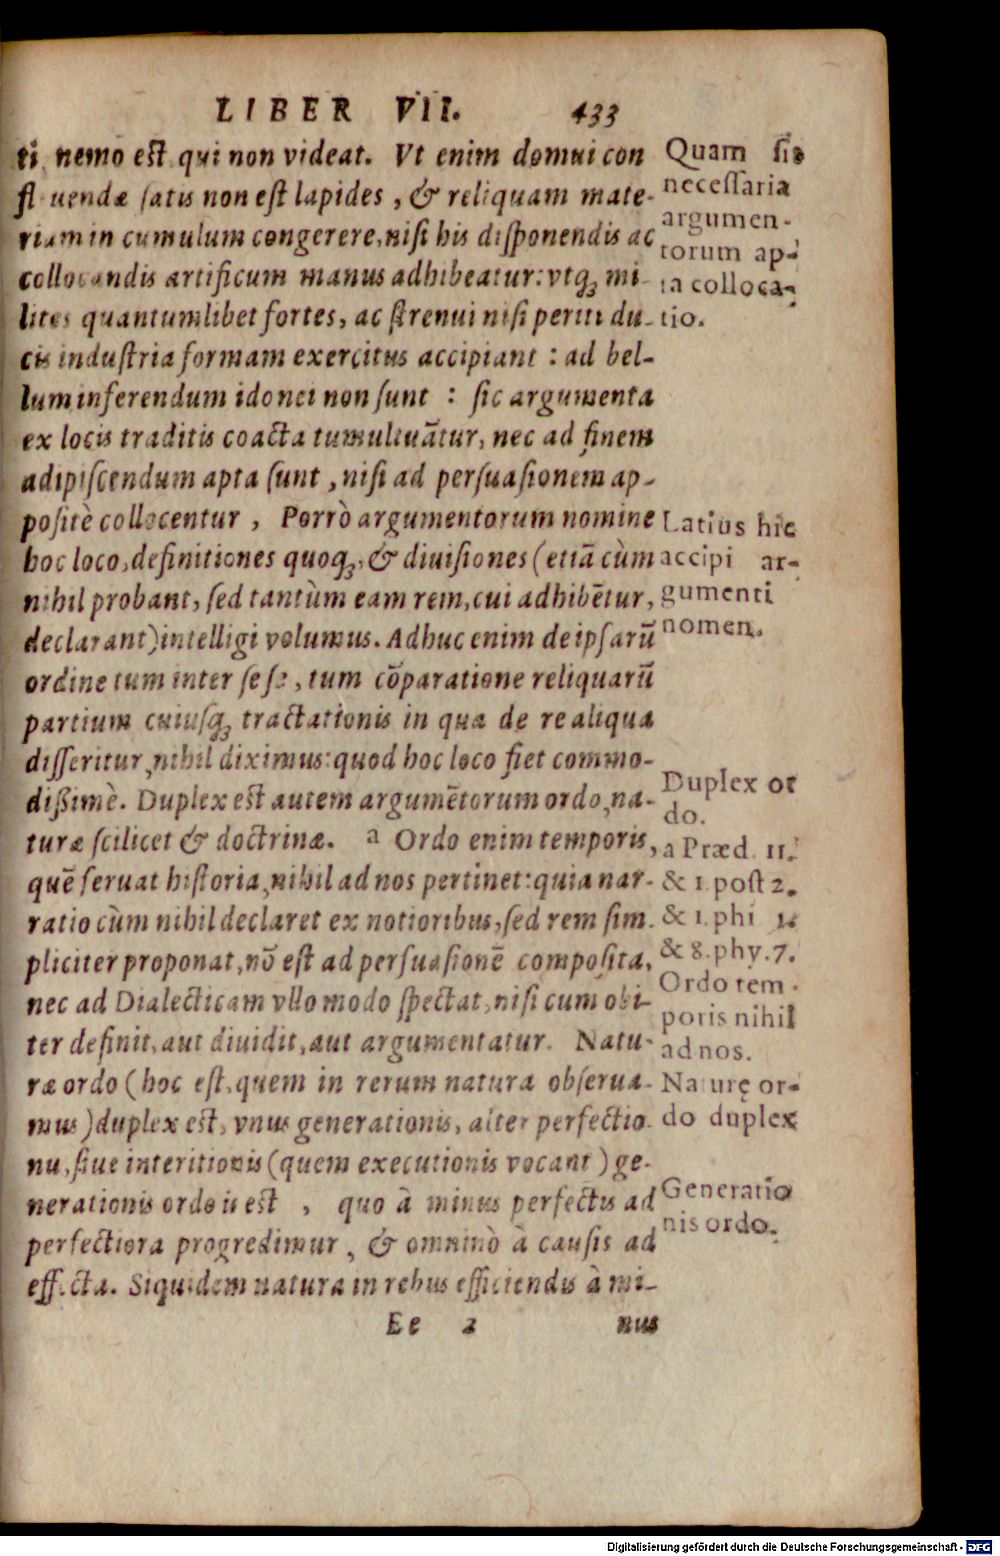 LIBER VII. 433
ti, nemo est qui non videat. Vt enim domui con
struendæ satis non est lapides, & reliquam mate-
riam in cumulum congerere, nisi his disponendis ac
collocandis artificum manus adhibeatur: vtq3 mi-
lites quantumlibet fortes, ac strenui nisi periti du-
cis industria formam exercitus accipiant : ad bel-
lum inferendum idonei non sunt : sic argumenta
ex locis traditis coacta tumultuãtur, nec ad finem
adipiscendum apta sunt, nisi ad persuasionem ap-
positè collocentur, Porrò argumentorum nomine
hoc loco, definitiones quoq3, & diuisiones (etiã cùm
nihil probant, sed tantùm eam rem, cui adhibẽtur,
declarant) intelligi volumus. Adhuc enim de ipsarũ
ordine tum inter sese, tum cõparatione reliquarũ
partium cuiusq3 tractationis in qua de re aliqua
disseritur, nihil diximus: quod hoc loco fiet commo-
dißimè. Duplex est autem argumẽtorum ordo, na-
turæ scilicet & doctrinæ. a Ordo enim temporis,
quẽ seruat historia, nihil ad nos pertinet: quia nar-
ratio cùm nihil declaret ex notioribus, sed rem sim-
pliciter proponat, nõ est ad persuasionẽ composita,
nec ad Dialecticam vllo modo spectat, nisi cum obi-
ter definit, aut diuidit, aut argumentatur. Natu-
ræ ordo (hoc est, quem in rerum natura obserua-
mus) duplex est, vnus generationis, alter perfectio-
nis, siue interitionis (quem executionis vocant) ge-
nerationis ordo is est, quo à minus perfectis ad
perfectiora progredimur, & omninò à causis ad
effecta. Siquidem natura in rebus efficiendis à mi-
Ee 2 nus
Quam sit
necessaria
argumen-
torum ap-
ta colloca-
tio.
Latius hic
accipi ar-
gumenti
nomen.
Duplex or
do.
a Præd. 11.
& 1. post 2.
& 1. phi 1.
& 8. phy. 7.
Ordo tem-
poris nihil
ad nos.
Naturę or-
do duplex
Generatio
nis ordo.
Digitalisierung gefördert durch die Deutsche Forschungsgemeinschaft - DFG